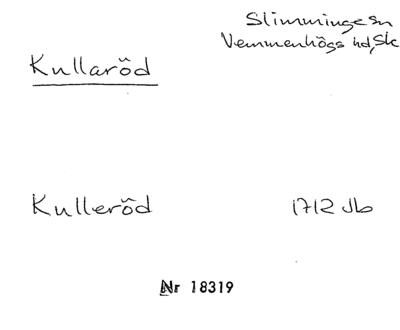 Slimminge sn
Vemmenhögs hd, Sk
Kullaröd
Kulleröd 1712 Jb
Nr 18319